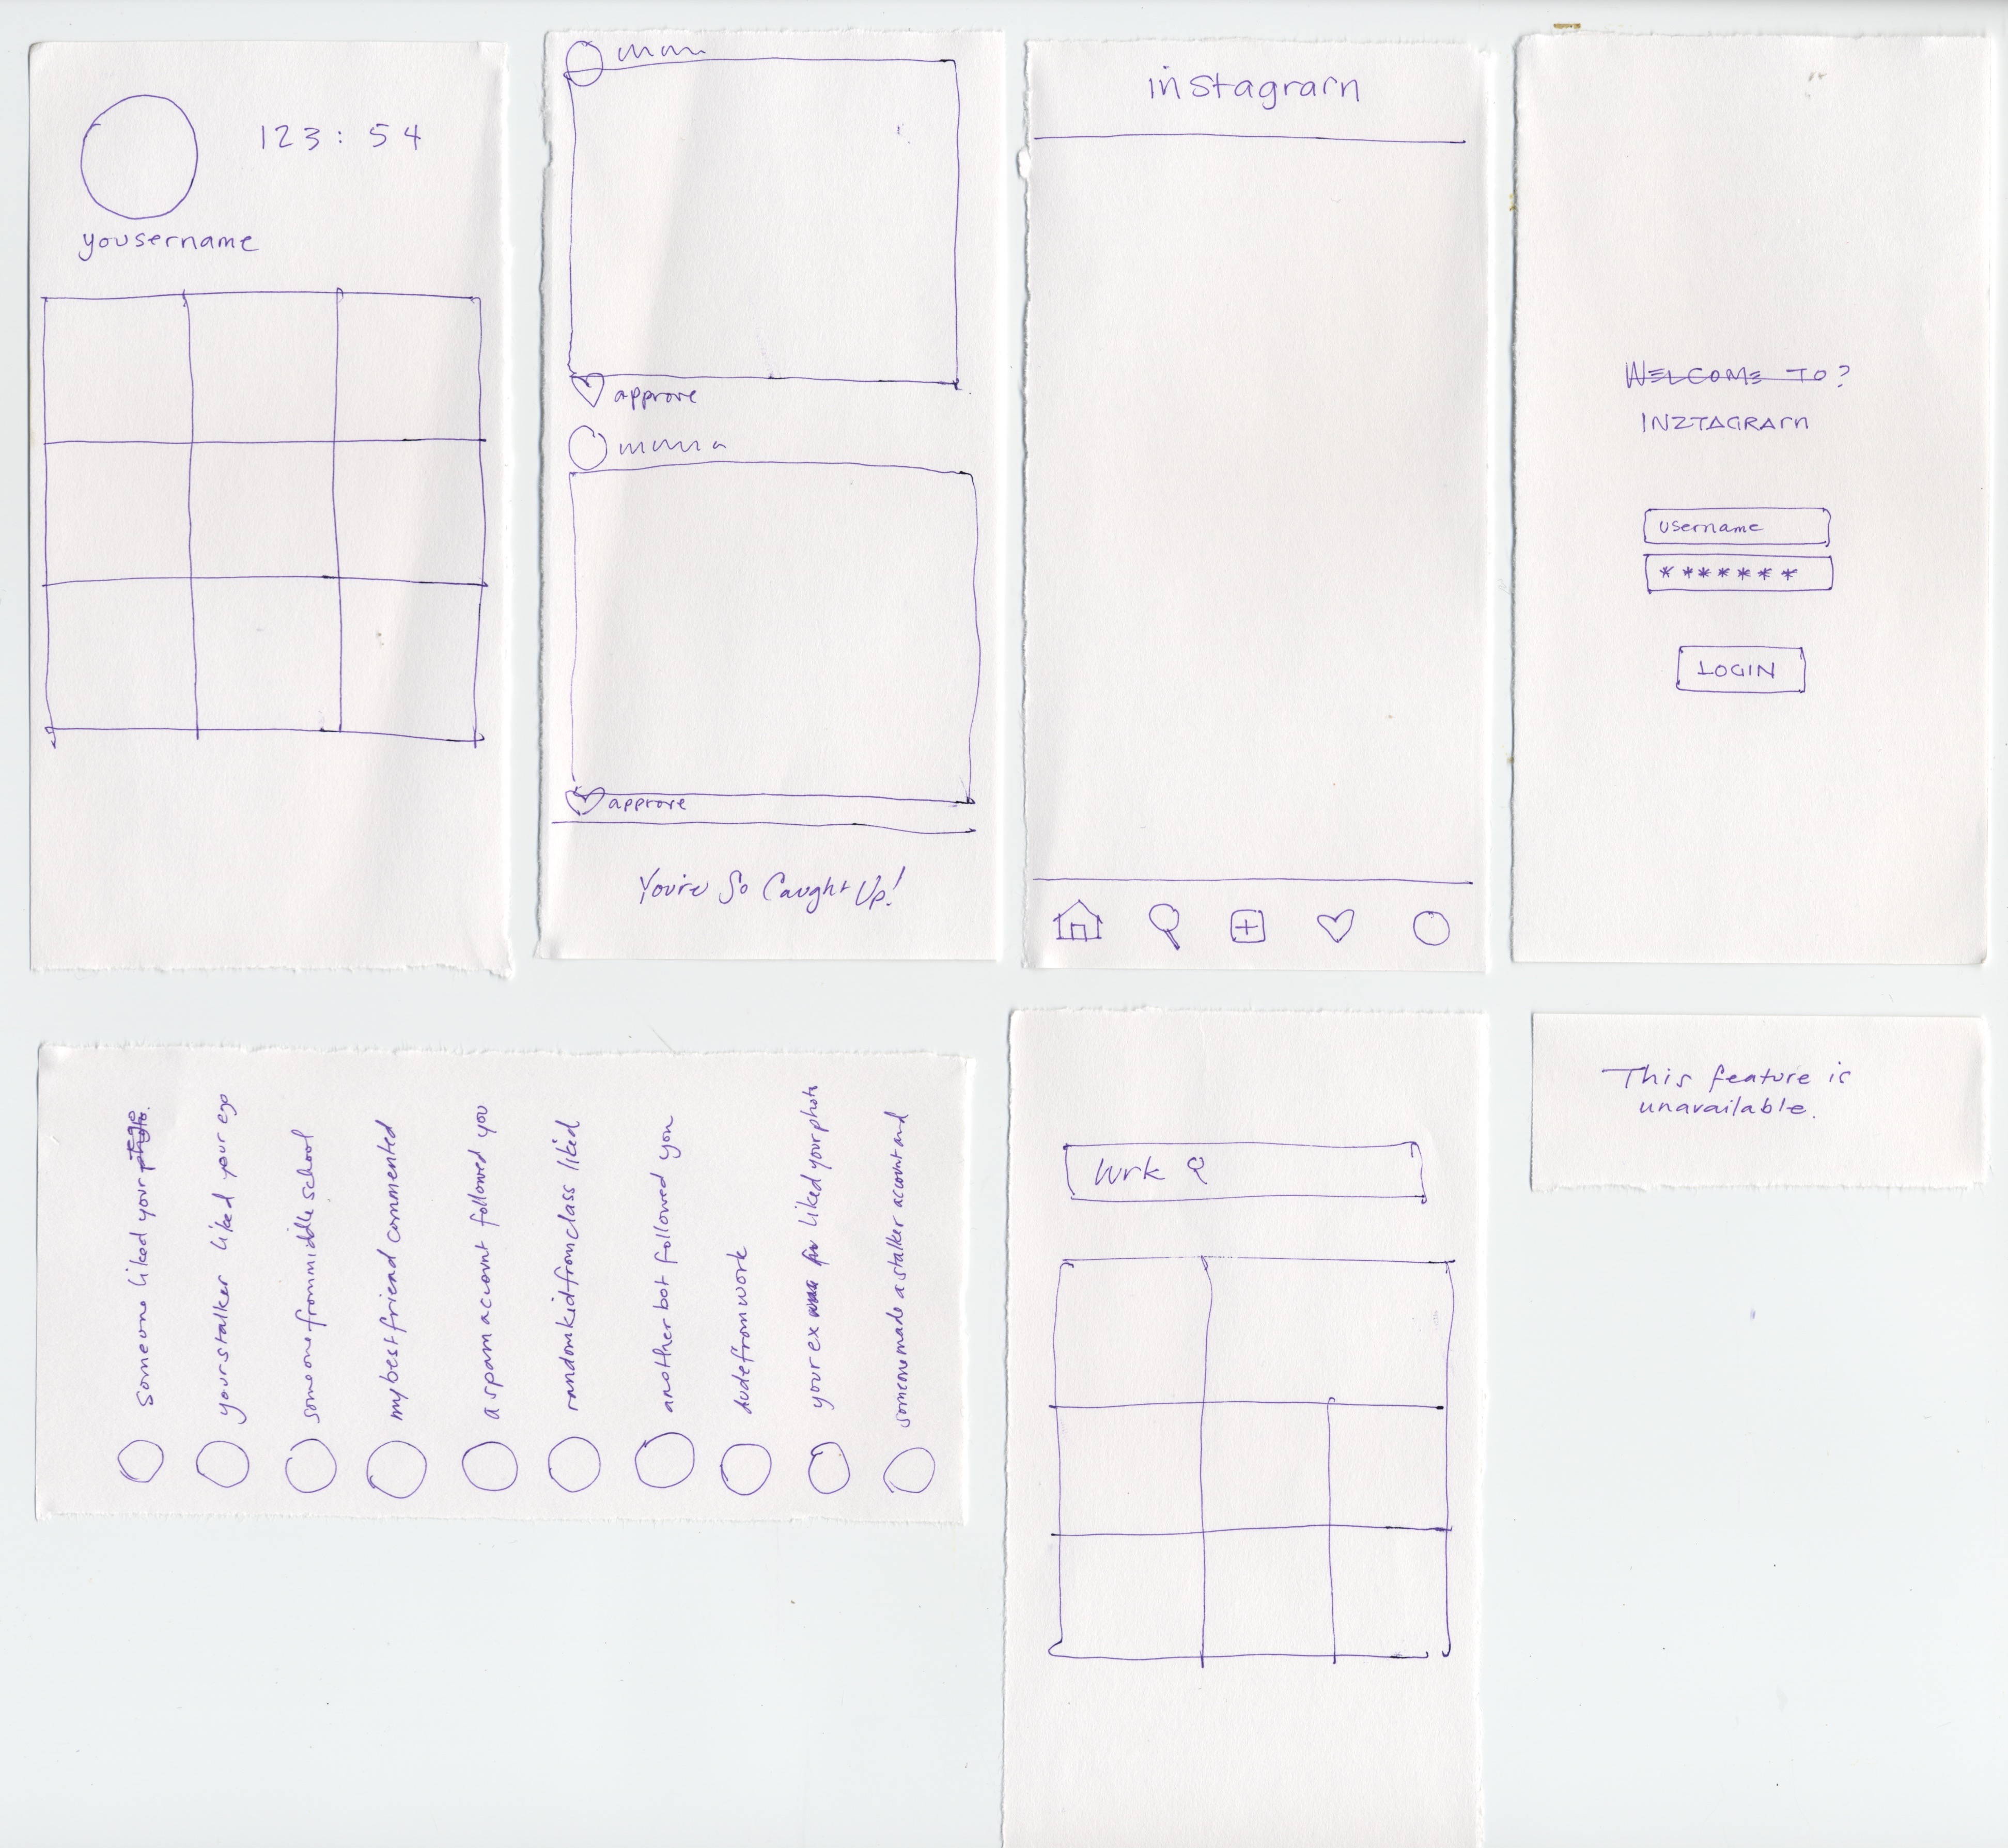 123: 54
yousername
approve
approve
You're So Caught Up!
instagrarn
WELCOME TO?
INZTAGRArn
username
*******
LOGIN
someone liked your
yourstalker liked your ego
someonefrommiddleschool
mybestfriend commented
aspamaccount followed you
randomkidfromclass liked
another bot followed you
dudefromwork
yourex liked your photo
someonemade a stalker account and
This feature is
unavailable.